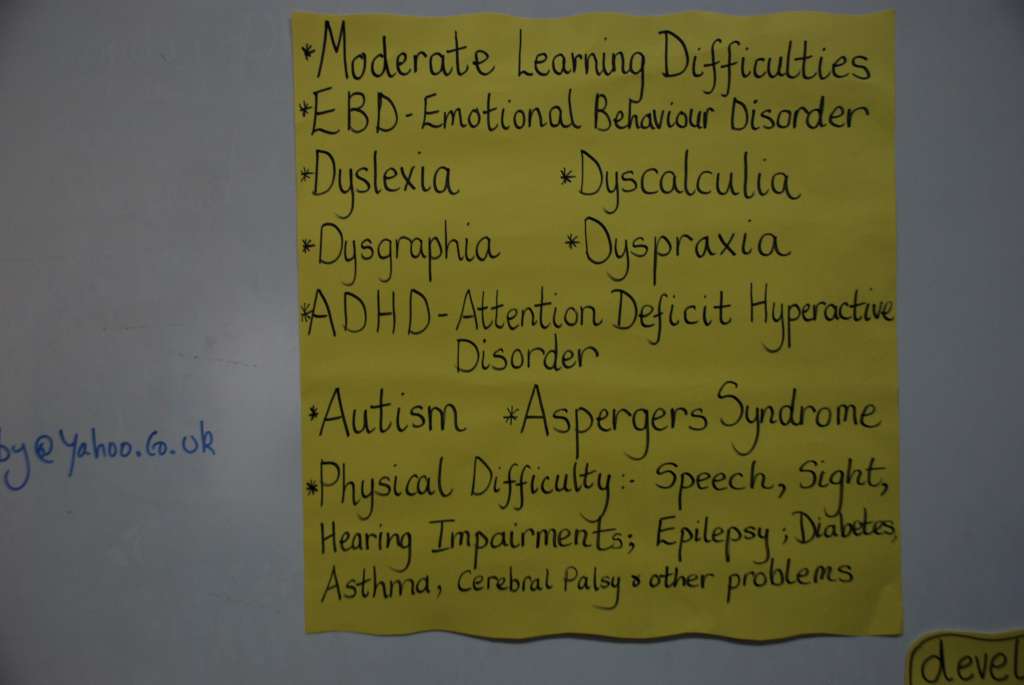 *Moderate Learning Difficulties
*EBD-Emotional Behaviour Disorder
*Dyslexia *Dyscalculia
*Dysgraphia *Dyspraxia
*ADHD-Attention Deficit Hyperactive
Disorder
*Autism *Aspergers Syndrome
by@Yahoo.Co.uk
*Physical Difficulty:- Speech, Sight,
Hearing Impairments; Epilepsy; Diabetes,
Asthma, Cerebral Palsy & other problems
devel